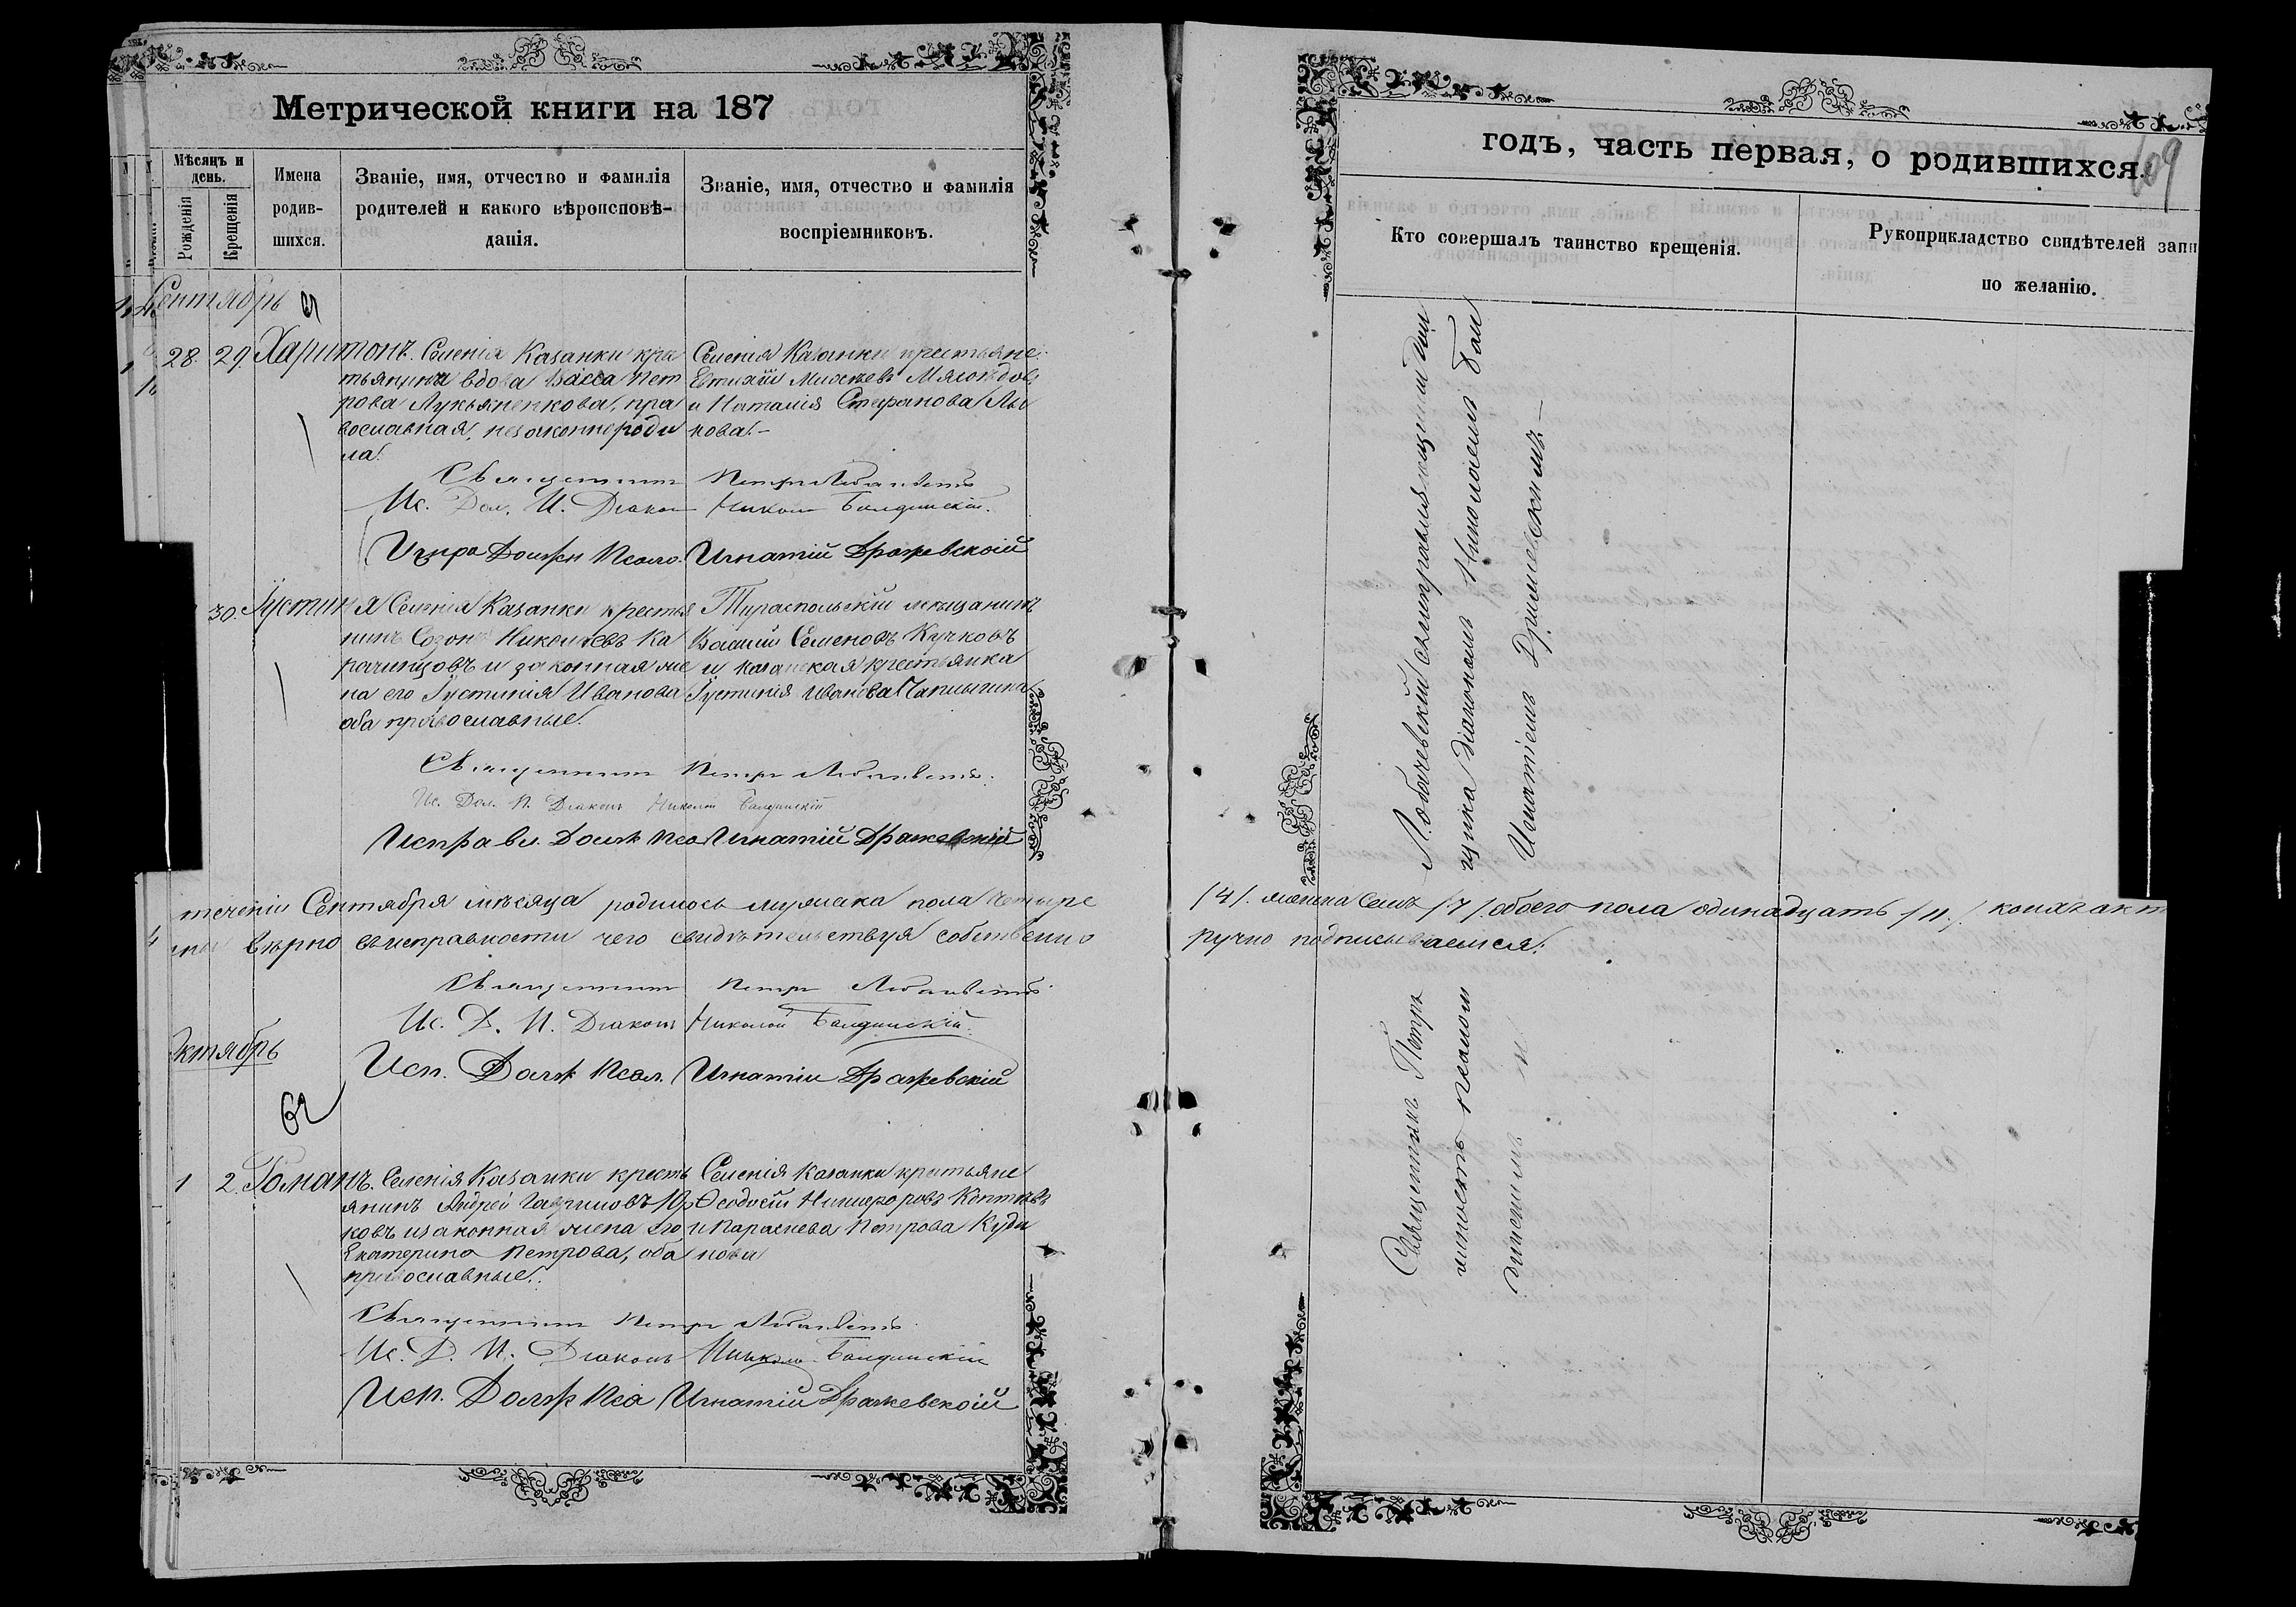 Метрической книги на 187
Мѣсяцъ и день.
Рожденія
Крещенія
Имена родив-шихся.
Званіе, имя, отчество и фамилія
родителей и какого вѣроисповѣ-
данія.
Званіе, имя, отчество и фамилія
воспріемниковъ.
Сентябрь
28. 29. Харитонъ.
Селенія Казанки кре
тьянина вдова Васса Пет
рова Лукьяненкова, пра
вославная, незаконно роди
ла.
Селенія Казанки крестьяне:
Евтихій Михеевъ
и Наталія Стефанова Лы
кова.
Священникъ Петръ
Ис. Дол. И. Діакон Никола Балдинскій.
Испра Должн Псало. Игнатій Дражевскоій
30. Іустинія
Селенія Казанки крестья
нинъ Созонъ Николаевъ Ка
рачинцовъ и законная же
на его Іустинія Иванова
оба православные.
Тираспольскій мещанинъ
Василій Семеновъ Кучковъ
и казанская крестьянка
Іустинія Иванова
Священникъ Петръ
Ис. Дол. И. Діаконъ Николай Балдинскій
Исправл. Долж Псо Игнатій Дражевскій
теченіи Сентября мѣсяца родилось мужска пола четыре
вѣрно въ исправности чего свидѣтельствуя собственно
Священникъ Петръ
Ис. Д. И. Діаконъ Николай Балдинскій.
Исп. Долж Псал. Игнатіи Дражевскій
Октябрь
1 2. Романъ.
Селенія Казанки кресть
янинъ Андрей Гавриловъ Юр
ковъ и законная жена его
Екатерина Петрова, оба
православные.
Селенія Казанки крестьяне
Ѳеодосій Никифоровъ
и Параскева Петрова Куди
нова
Священникъ Петръ
Ис. Д. И. Діаконъ Никола Балдинскіи
Исп. Долж Пса Игнатіи Дражевскоіи
годъ, часть первая, о родившихся.
109
Кто совершалъ таинство крещенія.
Рукоприкладство свидѣтелей запи
по желанію.
Священникъ Петръ Лобачевскій съ исправляющими дол
жность псалом щика діакономъ Николаемъ Бал
динскимъ и Игнатіемъ
/4/. женска семь /7/ обоего пола одинадцать /11./
ручно подписываемся: